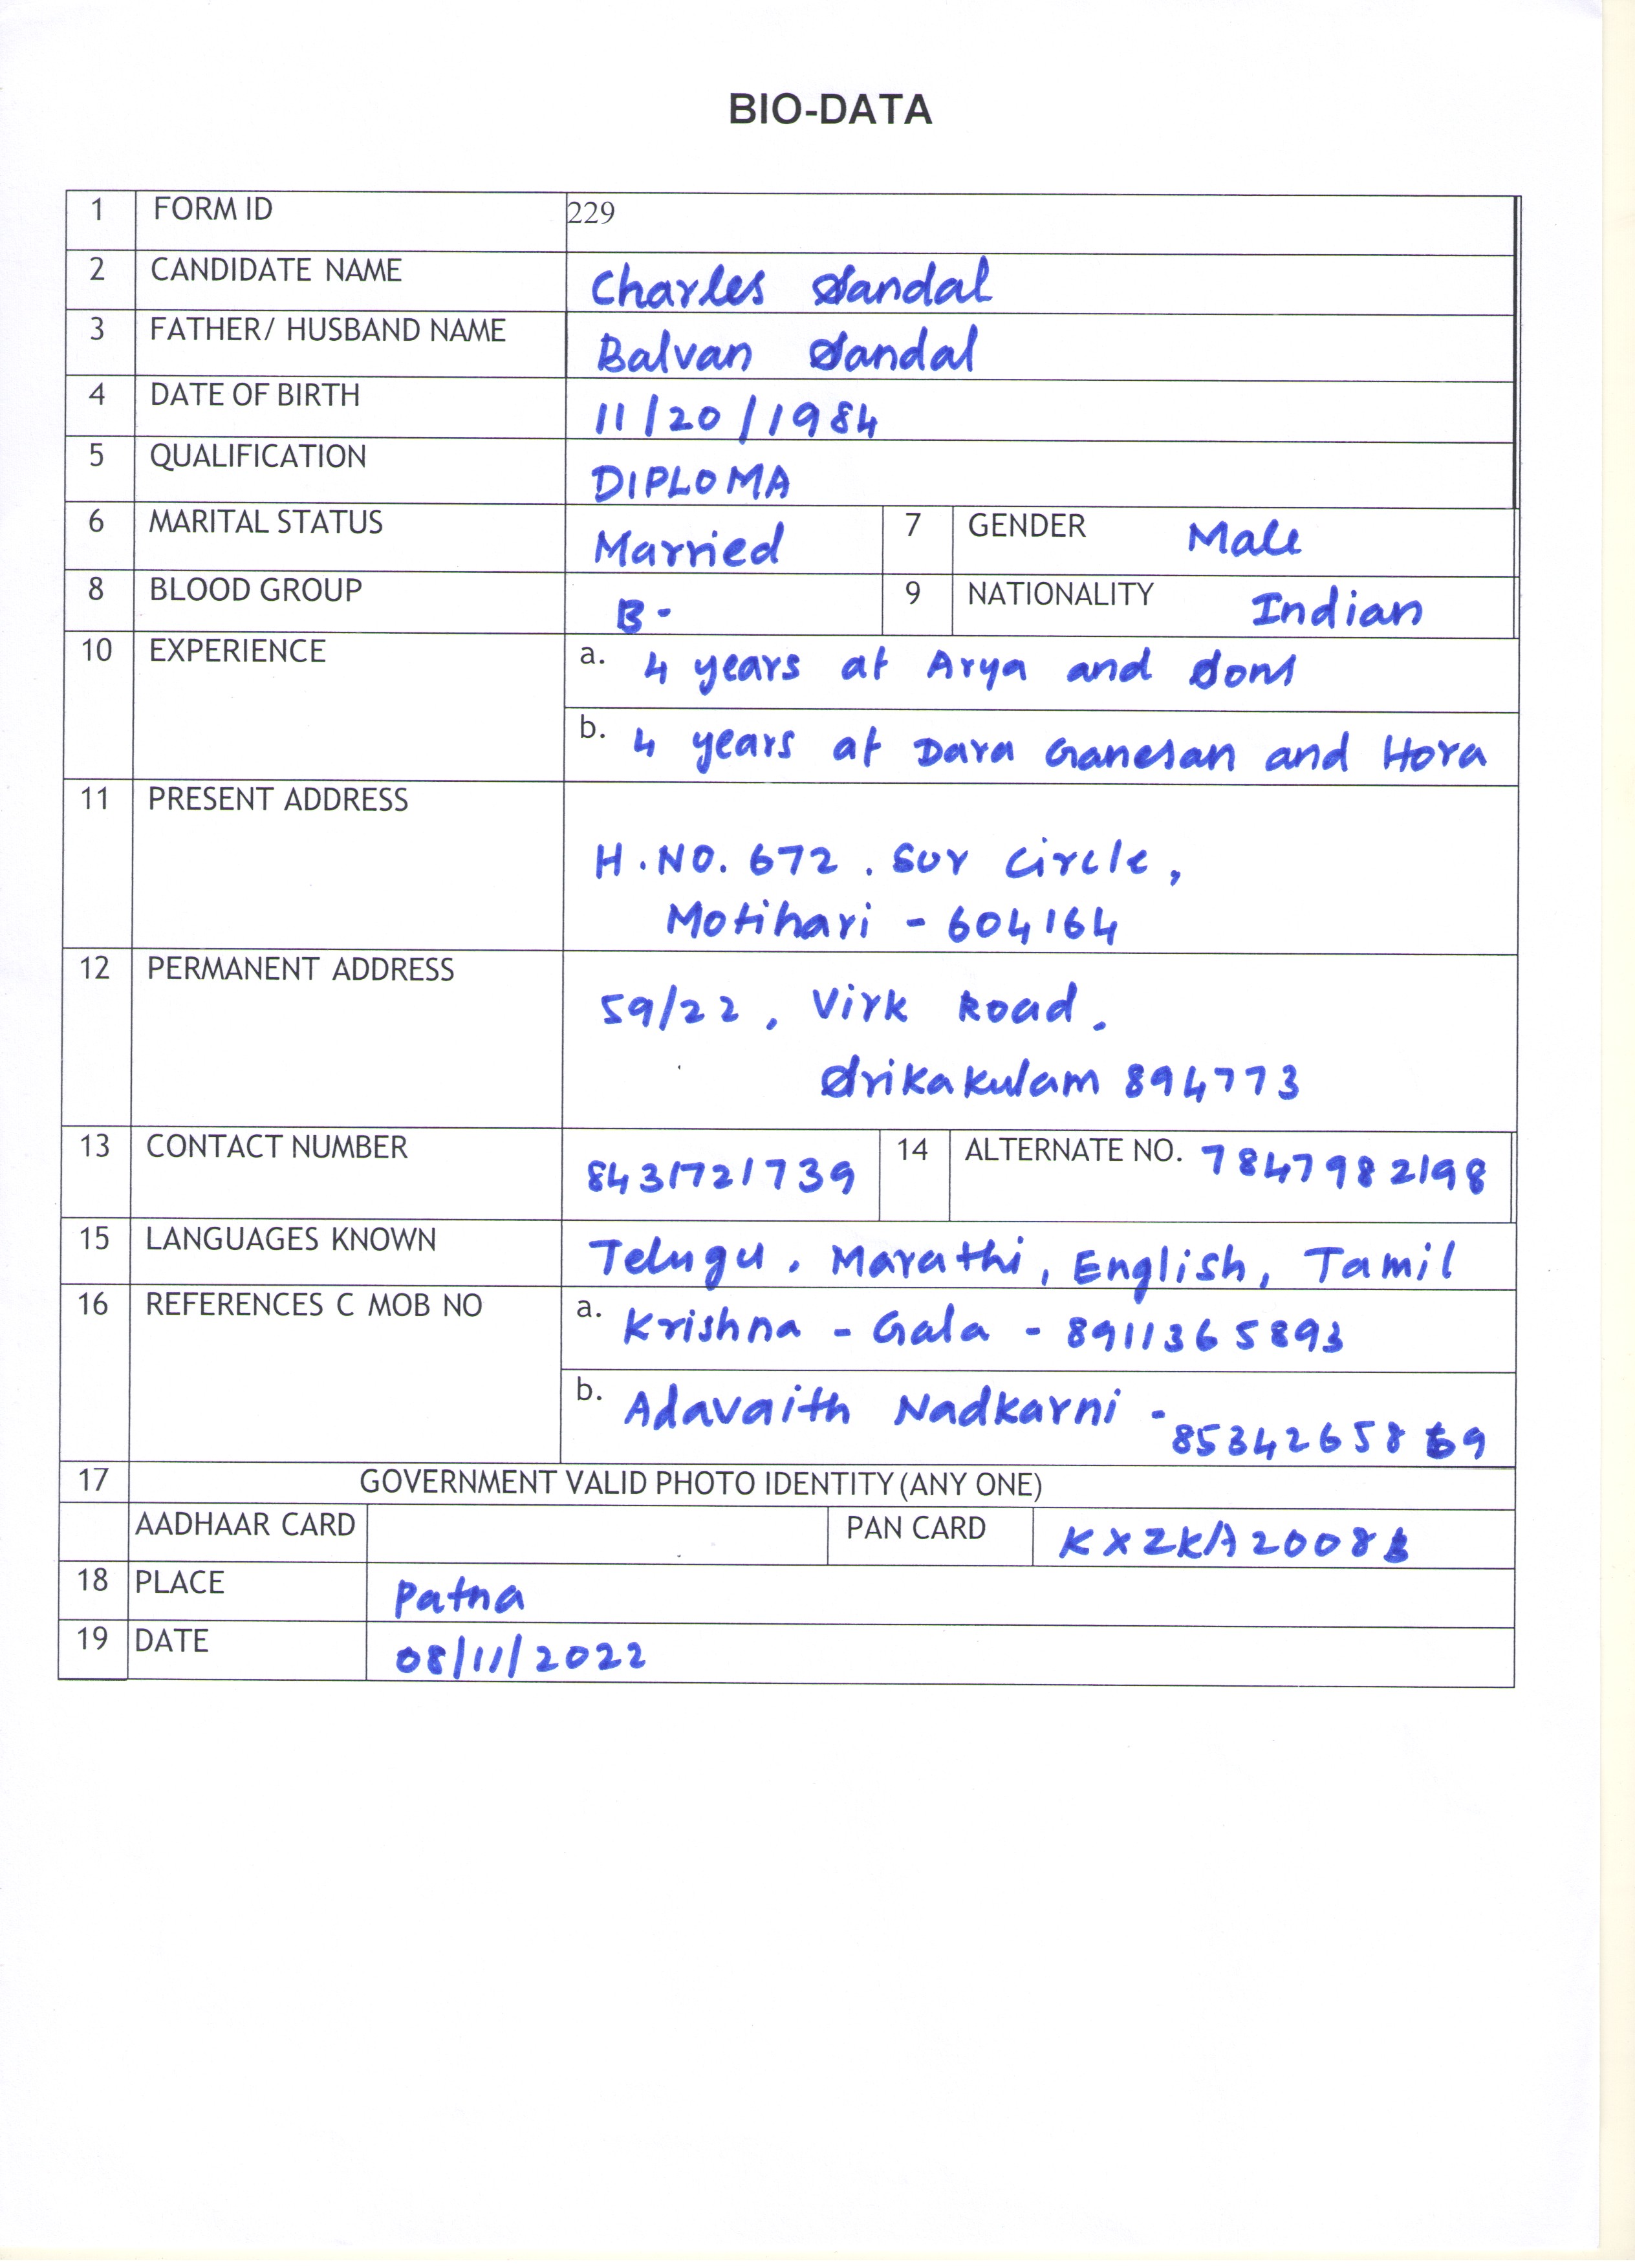 BIO-DATA
1 FORM ID 229
2 CANDIDATE NAME Charles Sandal
3 FATHER/ HUSBAND NAME Balvan Sandal
4 DATE OF BIRTH 11/20/1984
5 QUALIFICATION DIPLOMA
6 MARITAL STATUS Married 7 GENDER Male
8 BLOOD GROUP B- 9 NATIONALITY Indian
10 EXPERIENCE a. 4 years at Arya and Sons
b. 4 years at Dara Ganesan and Hora
11 PRESENT ADDRESS
H.NO. 672. Sur Circle,
Motihari - 604164
12 PERMANENT ADDRESS
59/22, Virk Road,
Srikakulam 894773
13 CONTACT NUMBER 8431721739 14 ALTERNATE NO. 7847982198
15 LANGUAGES KNOWN Telugu, Marathi, English, Tamil
16 REFERENCES C MOB NO a. Krishna - Gala - 8911365893
b. Adavaith Nadkarni -
17 GOVERNMENT VALID PHOTO IDENTITY (ANY ONE)
AADHAAR CARD PAN CARD
18 PLACE Patna
19 DATE 08/11/2022